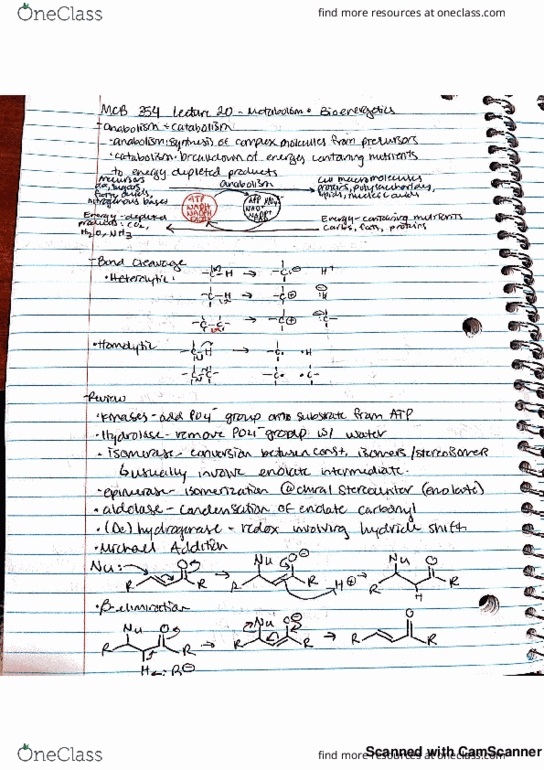 OneClass
find more resources at oneclass.com
MCB 354 Lecture 20 - Metabolism + Bioenergetics
- anabolism + catabolism
· anabolism: synthesis of complex molecules from precursors
· catabolism - breakdown of energies containing nutrients
to energy depleted products
precursors
anabolism
cell macromolecules
sugars
proteins, polysaccharides,
fatty acids,
lipids, nucleic acids
nitrogenous bases
ATP
NADH
NADPH
Energy-depleted
Energy-containing nutrients
products: CO2,
carbs, fats, proteins
H2O, NH3
- Bond Cleavage
· Heterolytic:
-C-H → -C⊖ H+
-C-H → -C⊕ H
-C-C- → -C⊕ C-
· Homolytic
-C-H → -C· ·H
-C-C- → -C· ·C-
- Review
· Kinases - add PO4- group onto substrate from ATP
· Hydrolase - remove PO4- group w/ water
· isomerase - conversion between const. isomers/stereoisomers
↳ usually involve enolate intermediate.
· epimerase - isomerization @ chiral stereocenter (enolate)
· aldolase - condensation of enolate carbonyl
· (De)hydrogenase - redox involving hydride shift
· Michael Addition
Nu: O R R → Nu O⊖ R R H⊕ → Nu O R R H
· β-elimination
Nu O R R H :B⊖ → Nu O⊖ R R → O R R
OneClass
find more resources at oneclass.com
Scanned with CamScanner